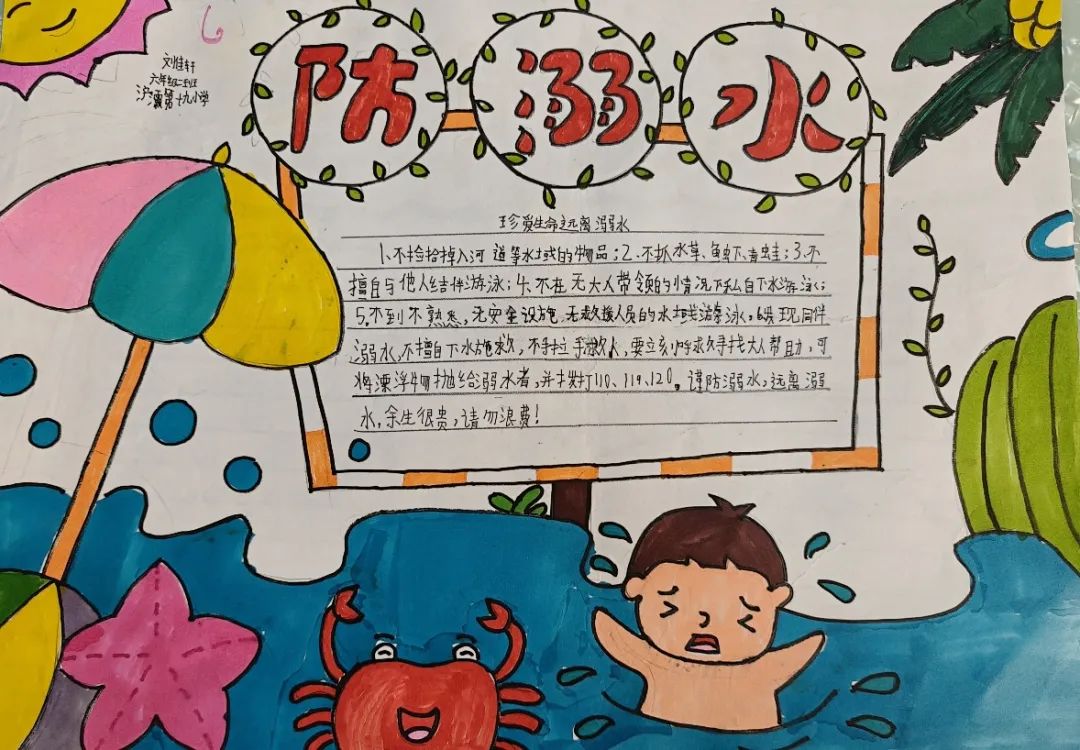 刘佳轩
六年级二班
沪溧第十九小学
6
防溺水
珍爱生命远离溺水
1、不捡拾掉入河道等水域的物品;2、不抓水草、鱼虾、青蛙;3、不
擅自与他人结伴游泳;4、不在无大人带领的情况下私自下水游泳;
5、不到不熟悉,无安全设施,无救援人员的水域游泳。6、发现同伴
溺水,不擅自下水施救,不手拉手救人,要立刻呼救寻找大人帮助,可
将漂浮物抛给溺水者,并拨打110、119、120。谨防溺水,远离溺
水,余生很贵,请勿浪费!